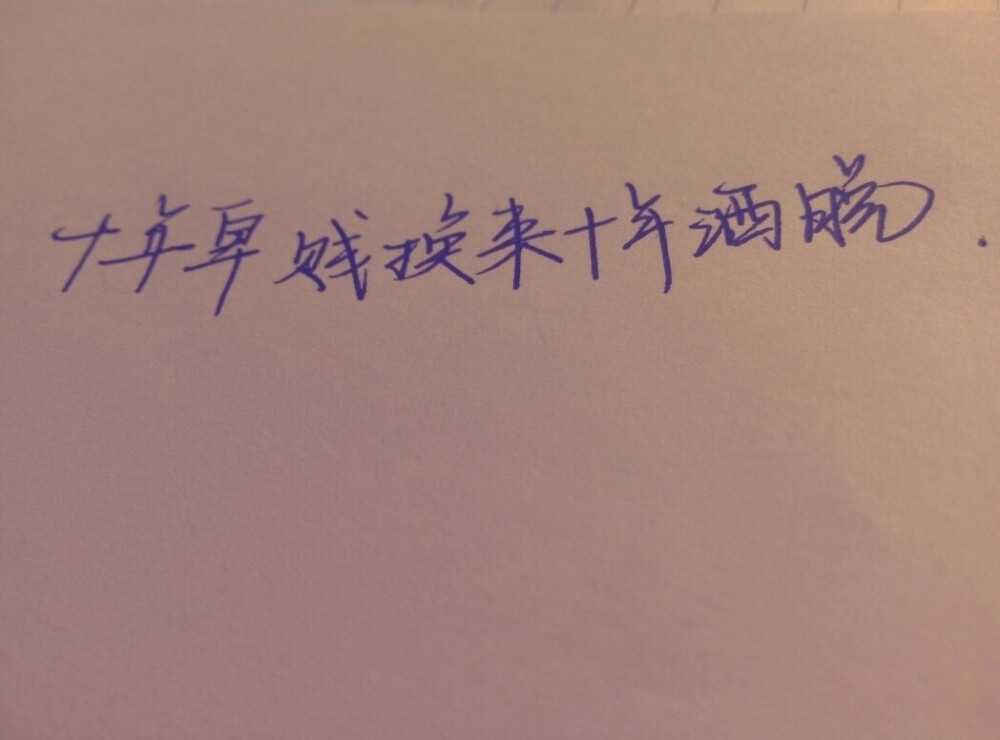 十年卑贱换来十年洒脱.